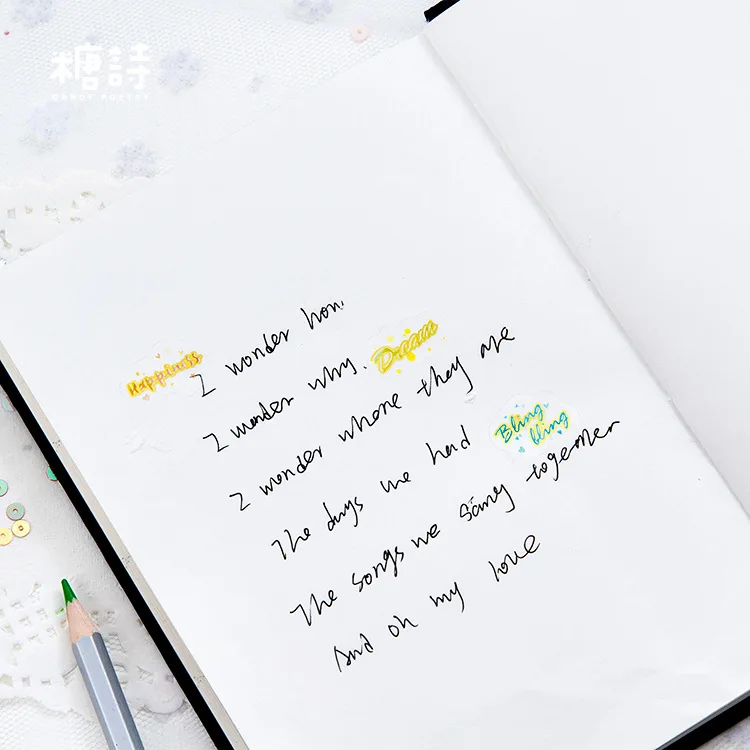 糖詩
CANDY POETRY
Happiness
I wonder how
I wonder why.
Dream
I wonder where they are
The days we had
Bling
bling
The songs we sang together
And oh my love